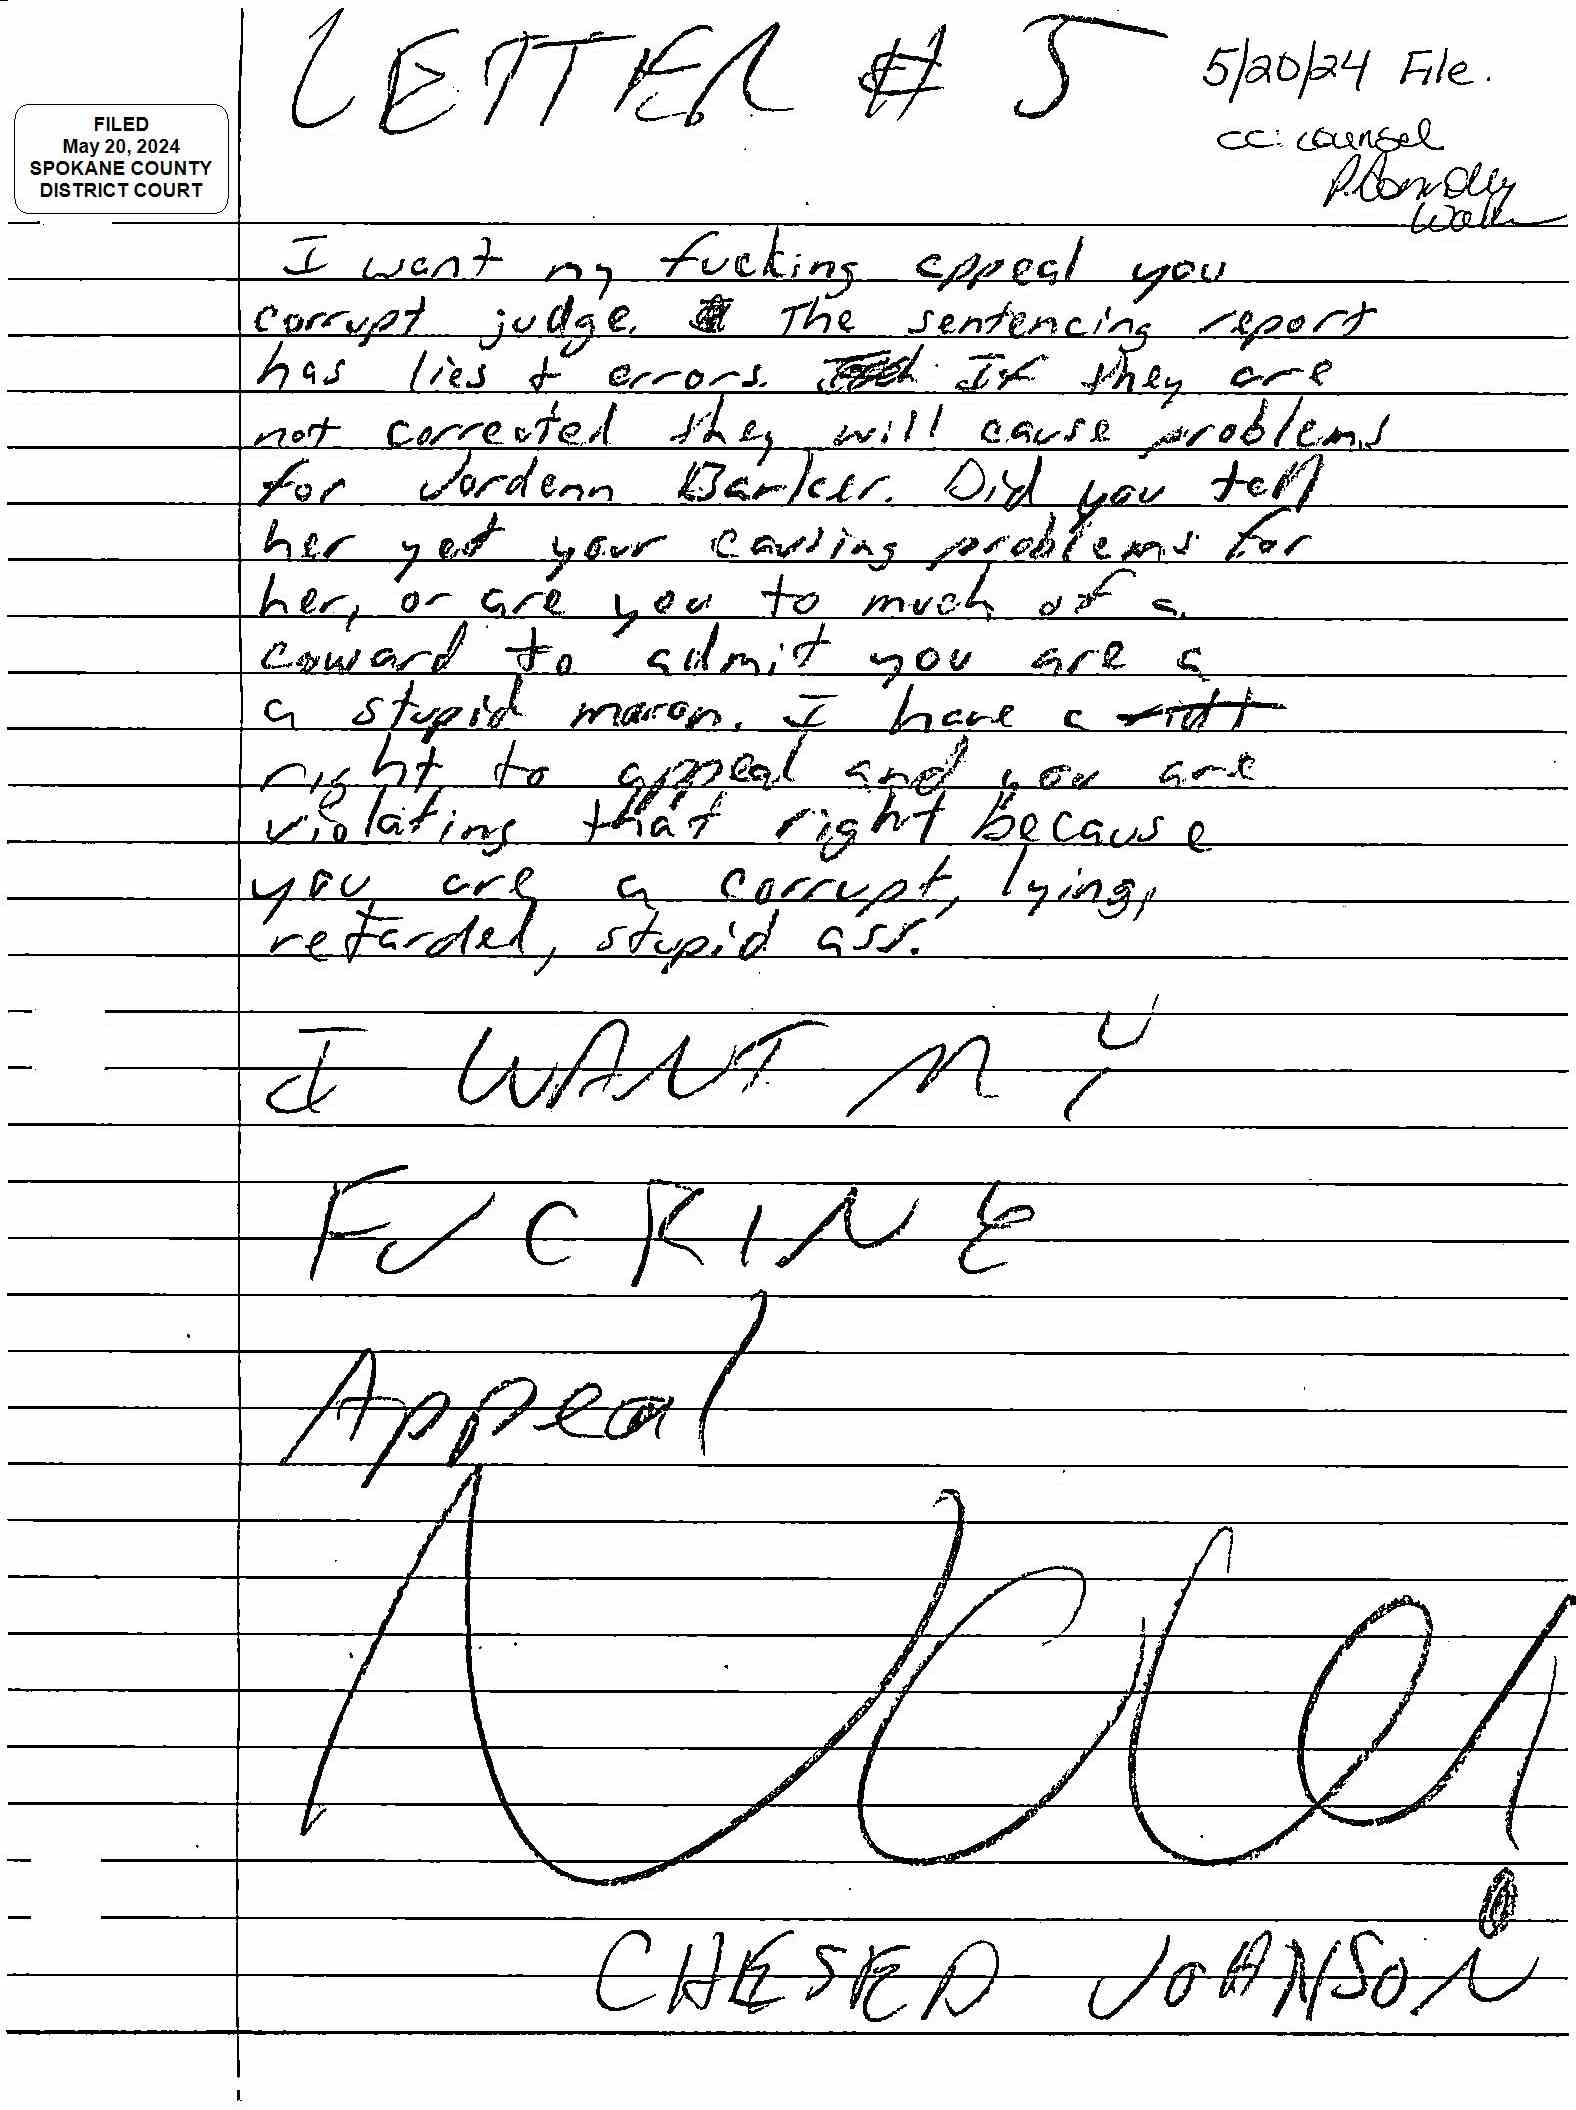 LETTER # 5
5/20/24 File.
cc: counsel
P. Connolly
Walk
FILED
May 20, 2024
SPOKANE COUNTY
DISTRICT COURT
I want my fucking appeal you
corrupt judge. The sentencing report
has lies & errors. If they are
not corrected they will cause problems
for Jordenn Barker. Did you tell
her yet your causing problems for
her, or are you to much of a
coward to admit you are a
a stupid maron. I have a ridt
right to appeal and you are
violating that right because
you are a corrupt, lying,
retarded, stupid ass.
I WANT MY
FUCKING
Appeal
Now!
CHESTER JOHNSON